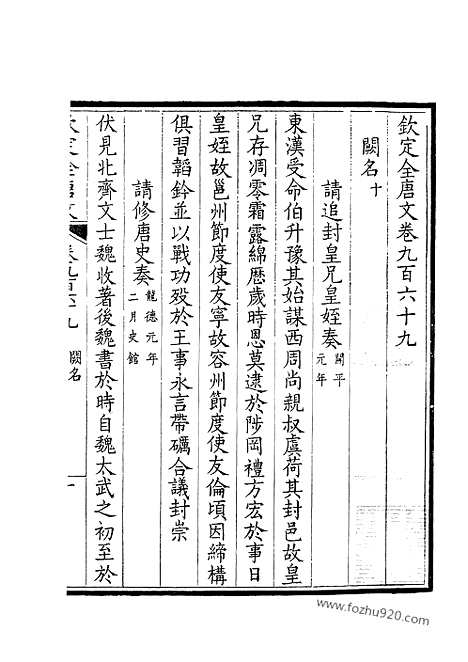 欽定全唐文卷九百六十九
闕名十
請追封皇兄皇姪奏開平元年
東漢受命伯升豫其始謀西周尚親叔虞荷其封邑故皇
兄存凋零霜露綿歷歲時恩莫逮於陟岡禮方宏於事日
皇姪故邕州節度使友寧故容州節度使友倫頃因締構
俱習韜鈐並以戰功歿於王事永言帶礪合議封崇
請修唐史奏龍德元年二月史館
伏見北齊文士魏收著後魏書於時自魏太武之初至於
欽定全唐文
卷九百六十九 闕名
一
www.fozhu920.com